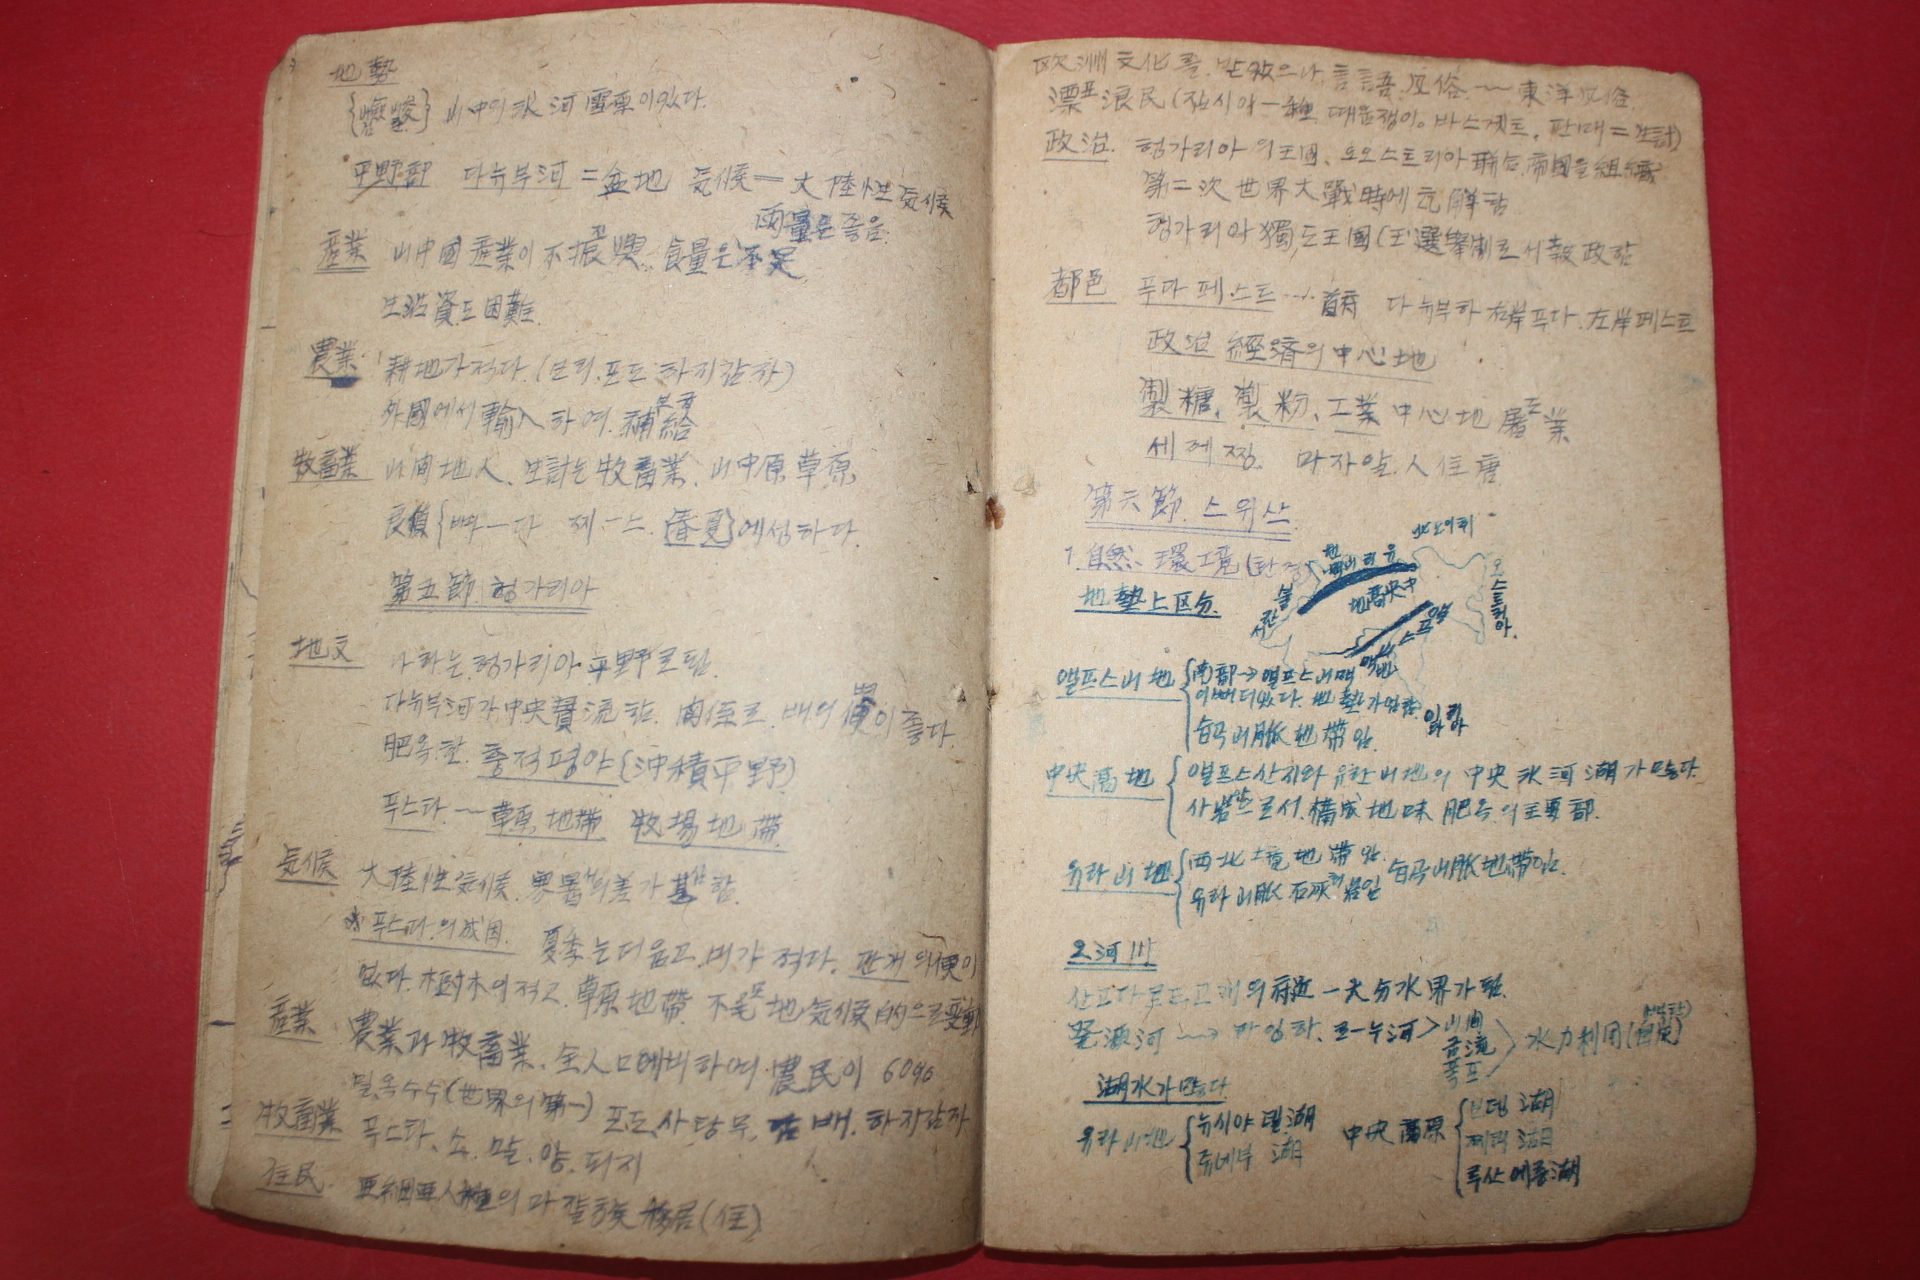 地勢
山中의 氷河 이있다.
平野部 다뉴부河 = 盆地 気候 = 大陸性 気候
雨量은 좋음.
産業 山中國 産業이 不振興, 食量은 不足
生活資도 困難.
農業 耕地가 적다. (보리. 포도. 하지감자)
外國에서 輸入하여. 補給
부급
牧畜業 山間地人. 生計는 牧畜業. 山中原 草原
에성하다.
第五節 헝가리아
地文 나라는 헝가리아 平野로됨.
다뉴부河가 中央 貫流함. 関係로. 배의 便이 좋다.
肥옥한. 충적평야 (沖積平野)
푸스타. ~ 草原 地帶 牧場 地帶
気候 大陸性 気候. 寒暑의 差가 甚함.
푸스타의 成因. 夏季는 더웁고. 비가 적다. 의 便이
없다. 樹木이 적고. 草原地帶. 不毛地 気候的으로 変動
産業 農業과 牧畜業. 全人口에 비하여. 農民이 60%
밀. 옥수수 (世界의 第一) 포도. 사탕무. 담배. 하지감자
牧畜業 푸스타. 소. 말. 양. 돼지
住民. 亜細亜人種의 마잘族 移居 (住)
欧洲 文化를 받았으나. 言語. 風俗. ~ 東洋風俗.
漂浪民 (짚시아 一種, 때움쟁이. 바스게트. 판매 = 生計)
표
政治. 헝가리아의 王國, 오오스트리아 聯合 帝國을 組織
第二次 世界大戰時에 瓦解함
헝가리아 獨立王國 (王選擧制로서 執政함
都邑 푸다페스트 … 首府 다뉴부하 右岸 푸다. 左岸 페스트
政治 経済의 中心地
製糖. 製粉. 工業 中心地 屠業
도
세에찡. 마자알. 人住居
第六節. 스위스
1. 自然 環境
北도이취
地勢上 区分.
불란서
오스트리아.
中央高地
알프스
앨프스山地 南部→ 앨프스山脈
이뻐더있다. 地勢가
이타리아
습곡山脈 地帶임.
中央高地 앨프스산지와 유라山地의 中央 氷河湖가 많다.
사암으로서. 構成 地味 肥옥의 主要部.
유라山地 西北 境地帶임. 습곡山脈地帶임.
유라山脈 石灰岩임
2. 河川
산고타르드고개의 府近 一大分水界가됨.
発源河 ~→ 라잉하. 로-누河 > 山間
急流
폭포 水力利用
湖水가 많다.
유라山地 뉴시야델湖
쥬네부 湖
中央高原 보덴湖
쮜리湖
루산에룬湖